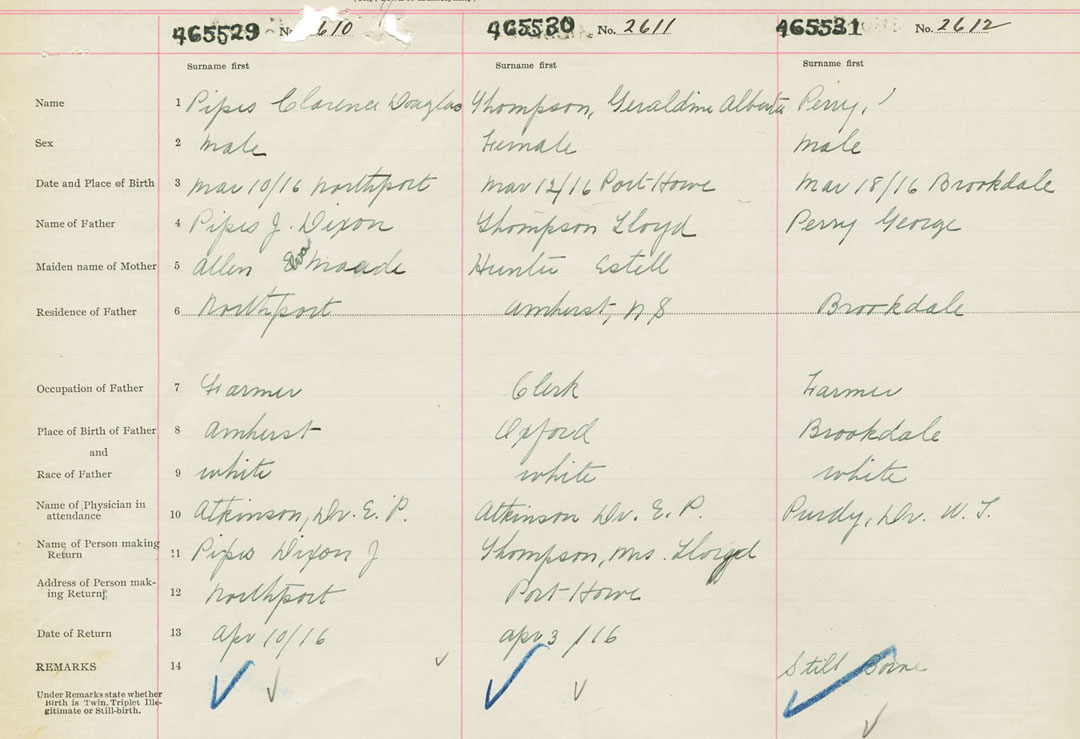 465529 No 610 465530 No. 2611 465531 No. 2612
Surname first Surname first Surname first
Name 1 Pipes Clarence Douglas Thompson, Geraldine Alberta Perry,
Sex 2 male Female male
Date and Place of Birth 3 Mar 10/16 Northport Mar 12/16 Port Howe Mar 18/16 Brookdale
Name of Father 4 Pipes J. Dixon Thompson Lloyd Perry George
Maiden name of Mother 5 Allen Eva Maude Hunter Estell
Residence of Father 6 Northport Amherst, N S Brookdale
Occupation of Father 7 Farmer Clerk Farmer
Place of Birth of Father 8 Amherst Oxford Brookdale
and
Race of Father 9 white white white
Name of Physician in
attendance 10 Atkinson, Dr. E. P. Atkinson Dr. E. P. Purdy, Dr. W. T.
Name of Person making
Return 11 Pipes Dixon J Thompson, Mrs. Lloyd
Address of Person mak-
ing Return 12 Northport Port Howe
Date of Return 13 Apr 10/16 Apr 3/16
REMARKS 14 Still Borne
Under Remarks state whether
Birth is Twin, Triplet Ille-
gitimate or Still-birth.